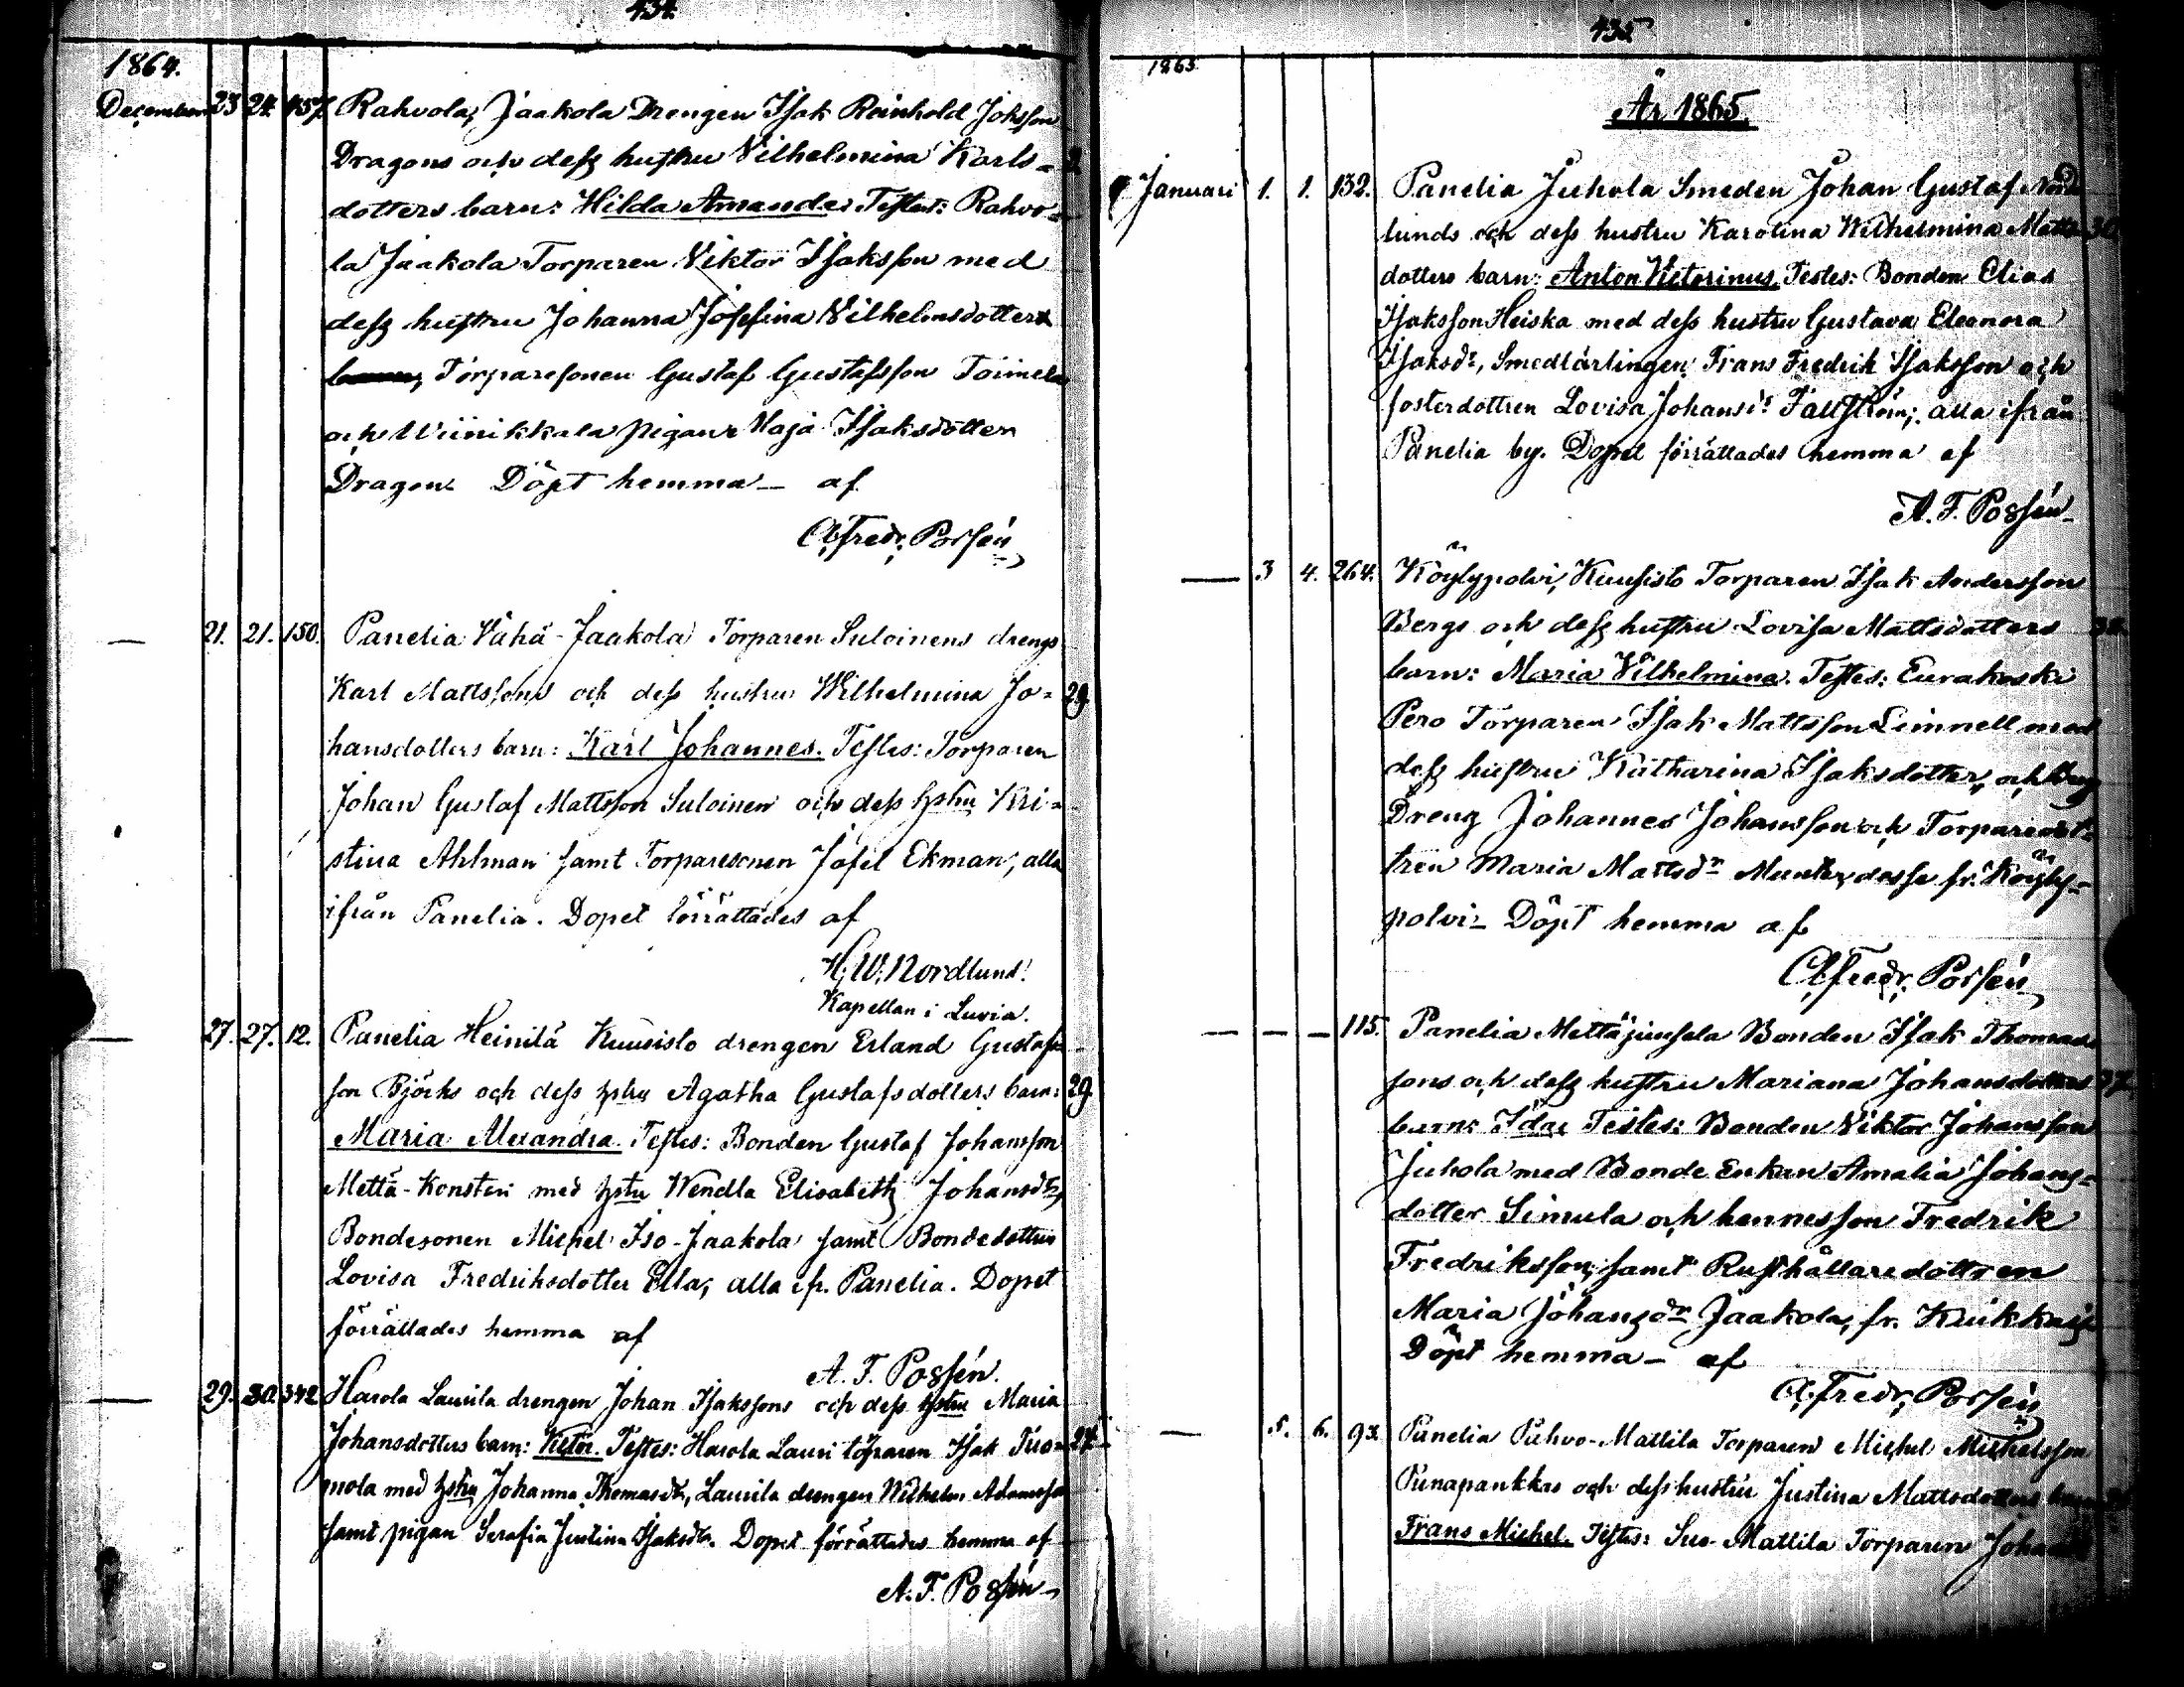 434.
1864.
December 23 24. 157. Rahvola, Jaakola Drengen Isak Reinhold Johsson
Dragons och dess hustru Vilhelmina Karls-
dotters barn: Hilda Amanda. Testes: Rahvo-
la Jaakola Torparen Viktor Isaksson med
dess hustru Johanna Josefina Vilhelmsdotter
Torparesonen Gustaf Gustafsson Toimela
och Wiinikkala pigan Maja Isaksdotter
Dragon. Döpt hemma af
Alfredr. Possén
— 21. 21. 150. Panelia Vähä-Jaakola Torparen Suloinens drengs
Karl Mattssons och dess hustru Wilhelmina Jo- 29.
hansdotters barn: Karl Johannes. Testes: Torparen
Johan Gustaf Mattsson Suloinen och dess hstru Kri-
stina Ahlman samt Torparesonen Josef Ekman, alla
ifrån Panelia. Dopet förrättades af
H. W. Nordlund.
Kapellan i Luvia.
— 27. 27. 12. Panelia Heinilä Kuusisto drengen Erland Gustafs-
son Björks och dess hstru Agatha Gustafsdotters barn: 29.
Maria Alexandra. Testes: Bonden Gustaf Johansson
Mettä-Konsteri med hstru Wendla Elisabeth Johansdtr,
Bondesonen Michel Iso-Jaakola samt Bondedottren
Lovisa Fredriksdotter Eila, alla fr. Panelia. Dopet
förrättades hemma af
A. F. Possén.
29. 30. 342 Harola Laurila drengen Johan Isakssons och dess hstru Maria
Johansdotters barn: Victor. Testes: Harola Lauri torparen Isak Tuo- 27.
mola med hstru Johanna Thomasdtr, Laurila drengen Wilhelm Adamsson
samt pigan Serafia Justina Isaksdtr. Dopet förrättades hemma af
A. F. Possén
435
1865
År 1865.
Januari 1. 1. 132. Panelia Juhola Smeden Johan Gustaf Nord-
lunds och dess hustru Karolina Wilhelmina Matts-
dotters barn: Anton Victorinus. Testes: Bonden Elias
Isaksson Heiska med dess hustru Gustava Eleonora
Isaksdr, Smedlärlingen Frans Fredrik Isaksson och
fosterdottren Lovisa Johansdr Fallström; alla ifrån
Panelia by. Dopet förrättades hemma af
A. F. Possén
— 3 4. 264. Köylypolvi, Kuusisto Torparen Isak Andersson
Bergs och dess hustru Lovisa Mattsdotters
barn: Maria Vilhelmina. Testes: Eurakoski
Pero Torparen Isak Mattsson Limnell med
dess hustru Katharina Isaksdotter, och
Dreng Johannes Johansson och Torparedot-
tren Maria Mattsdr Munter, desse fr. Köyly-
polvi. Döpt hemma af
Alfredr. Possén
— — — 115. Panelia Mettäjunsala Bonden Isak Thomas-
sons och dess hustru Mariana Johansdotters 37.
barn: Ida. Testes: Bonden Viktor Johansson
Juhola med Bonde Enkan Amalia Johans-
dotter Simula och hennes son Fredrik
Fredriksson, samt Rusthållaredottren
Maria Johansdr Jaakola, fr.
Döpt hemma af
Alfredr. Possén
— 5. 6. 93. Panelia Puhvo-Mattila Torparen Michel Michelsson
Punapankkas och dess hustru Justina Mattsdotters barn
Frans Michel. Testes: Suo-Mattila Torparen Johan